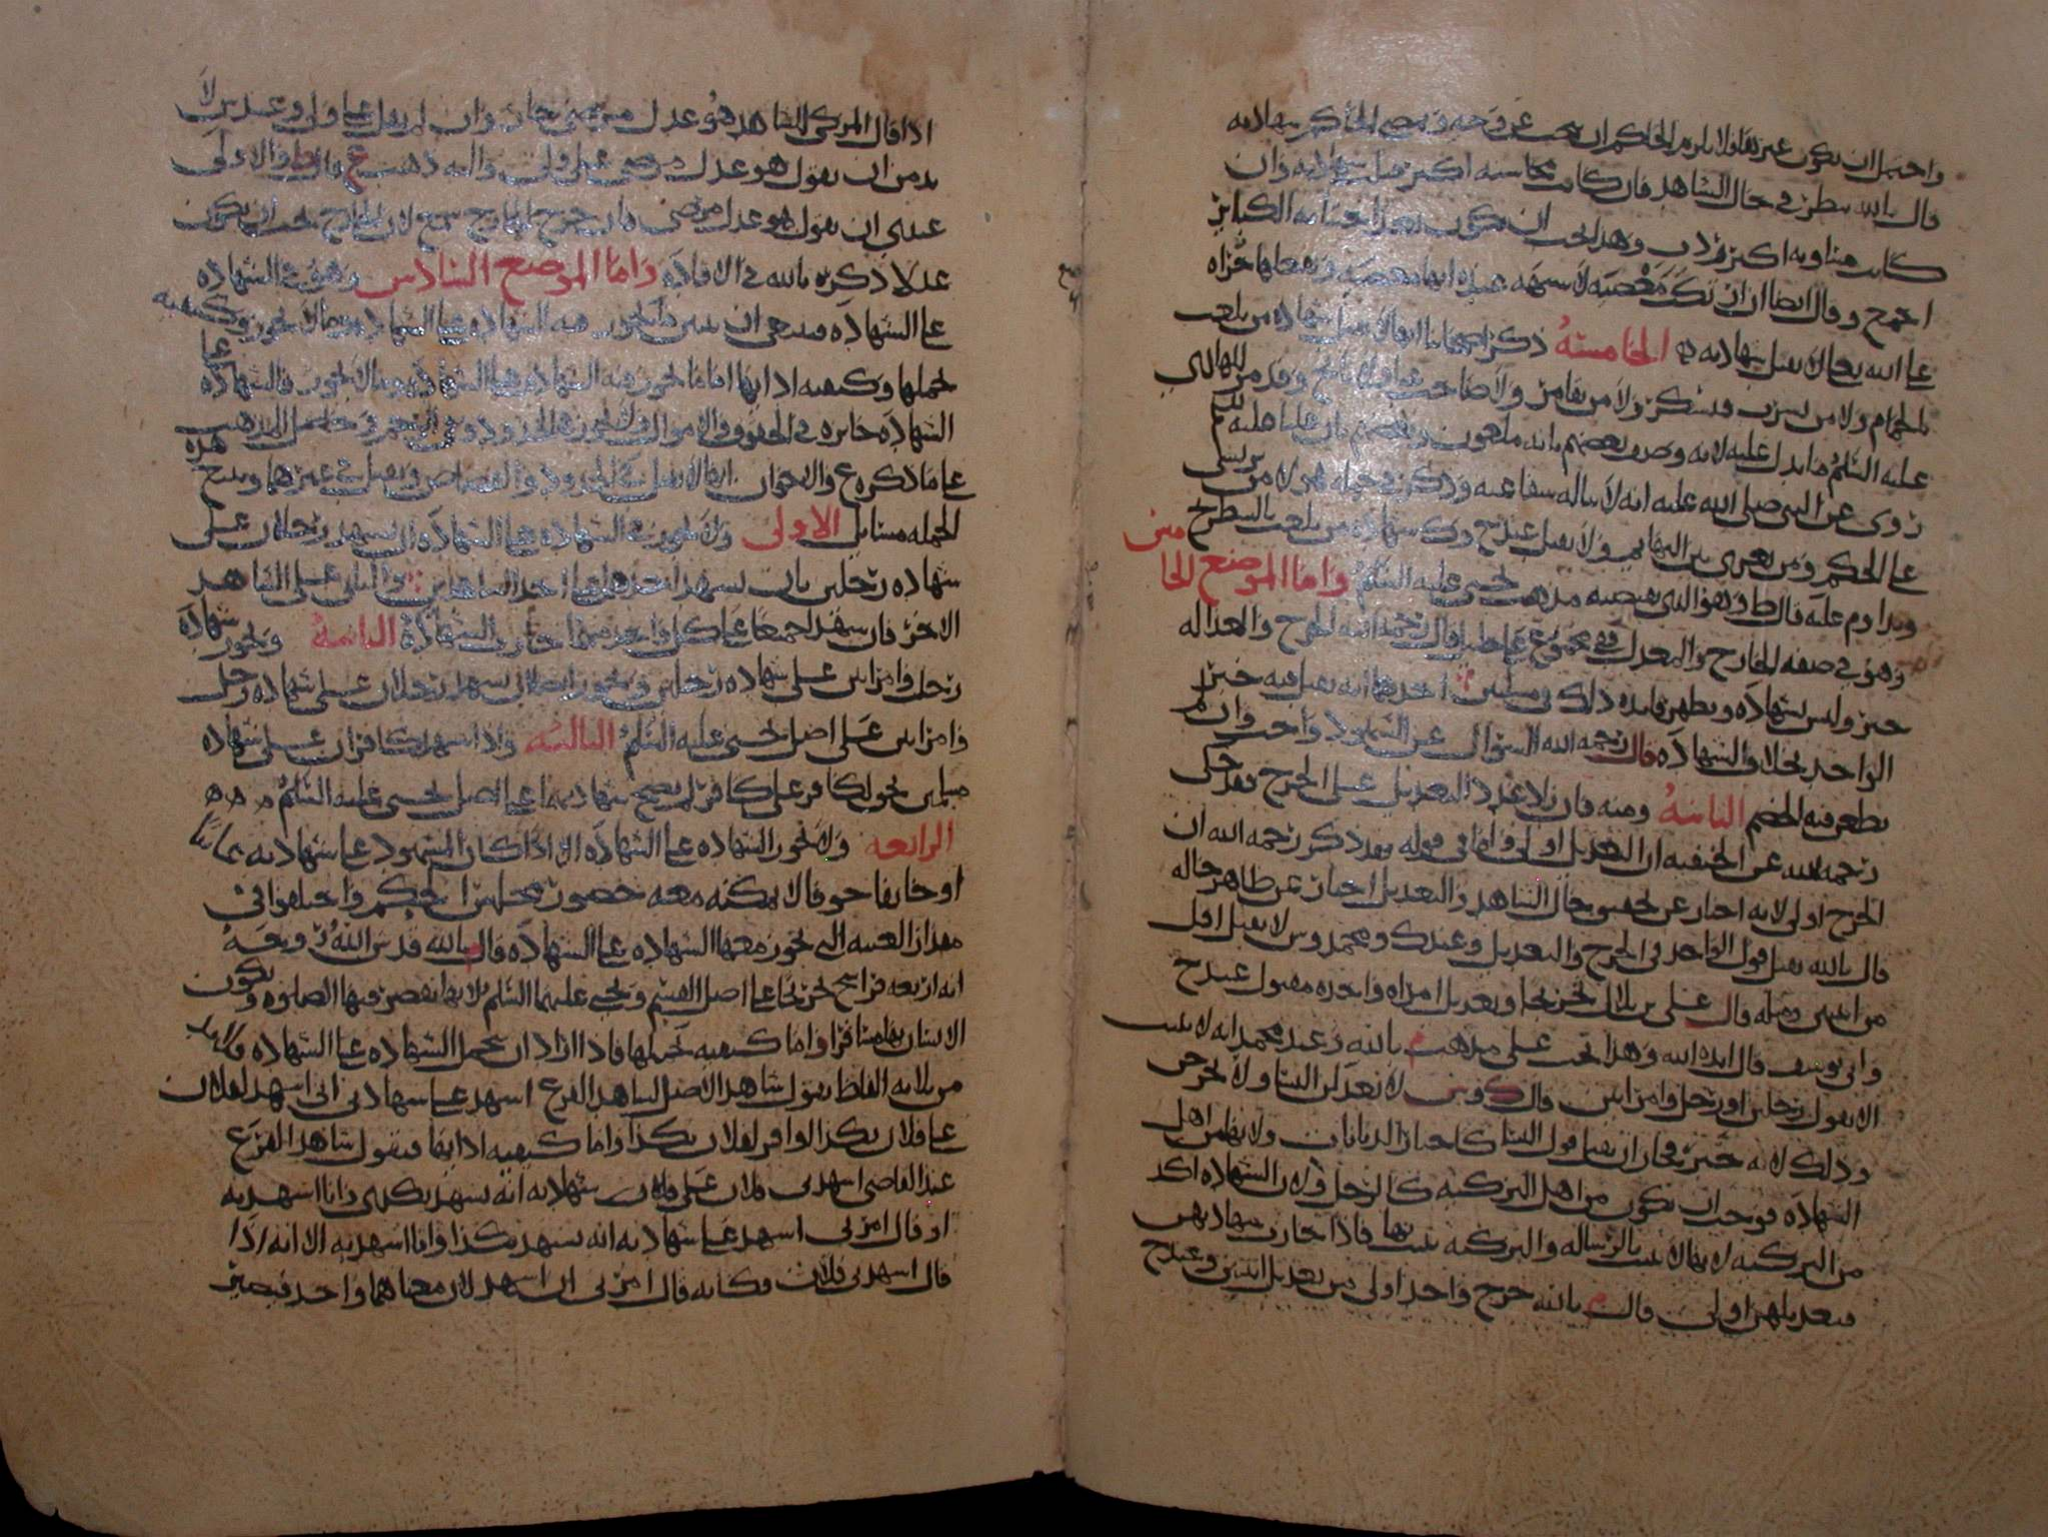 واحتمل ان يكون غير ثقة فلا يلزم الحاكم ان يبحث عن وجه ويمضي الحاكم شهادته
قال بالله ينظر في حال الشاهد فان كانت محاسنه اكثر قبلت شهادته وان
كانت مساويه اكثر ردت وهذا يجب ان يكون بعد اجتنابه الكبائر
اجمع وقال ايضا ان ارتكب معصية لا يستهه عنده انها معصية وفعلها جراة
على الله تعالى لا تقبل شهادته الخامسة ذكر اصحابنا انها لا تقبل شهادة من يلعب
بالحمام ولا من يشرب فيسكر ولا من يقامر ولا صاحب
عليه السلم ما يدل عليه لانه وصف بعضهم بانه ملعون وبعضهم بان
روي عن النبي صلى الله عليه انه لا يناله شفاعته وذكر في جملة هولاء من يرتشي
على الحكم ومن يغري بين البهايم ولا تقبل عند ح وك شهادة من يلعب بالشطرنج
ويداوم عليه قال ط وهو الذي يقتضيه مذهب يحيى عليه السلم واما الموضع الخامس
وهو في صفة الجارح والمعدل ففي مجموع علي خليل قال رحمه الله الجرح والعدالة
خبر وليس بشهادة ويظهر فايدة ذلك في مسلتين احدهما انه يقبل فيه خبر
الواحد بخلاف الشهادة قال رحمه الله السؤال عن الشهود واجب وان لم
يطعن فيه الخصم الثانية ومنه فان زاد عدد التعديل على الجرح فقد حكى
رحمه الله عن الحنفية ان التعديل اولى واما في قوله فقد ذكر رحمه الله ان
الجرح اولى لانه اخبار عن تحقيق حال الشاهد والتعديل اخبار عن ظاهر حاله
قال بالله يقبل قول الواحد في الجرح والتعديل وعند ك ومحمد وس لا يقبل اقل
من اثنين ومثله قال علي بن بلال تخريجا وتعديل امراة واحدة مقبول عند ح
وابي يوسف قال ايده الله وهذا يجب على مذهب م بالله وعند محمد انه لا يثبت
الا بقول رجلين او رجل وامراتين قال ك وش لا تعدلن النسا ولا تجرحن
وذلك لانه خبر فجاز ان يقبل قول النسا كاخبار الديانات ولانها من اهل
الشهادة فوجب ان تكون من اهل التزكية كالرجل ولان الشهادة اكد
من التزكية لانها لا تثبت بالرسالة والتزكية تثبت بها فاذا جازت شهادتهن
فتعديلهن اولى قال م بالله جرح واحد اولى من تعديل اثنين وعند ح
اذا قال المزكي للشاهد هو عدل مرضي جاز وان لم يقل علي ولي وعند ش لا
بد من ان يقول هو عدل مرضي علي ولي واليه ذهب ع قال ط والاولى
عندي ان يقول هو عدل مرضي فان جرح الجارح سمع لان الجارح يجب ان يكون
عدلا ذكره بالله في الافادة واما الموضع السادس وهو في الشهادة
على الشهادة فينبغي ان نبين ما تجوز فيه الشهادة على الشهادة وما لا تجوز وكيفية
تحملها وكيفية ادايها اما ما تجوز فيه الشهادة على الشهادة وما لا تجوز فالشهادة على
الشهادة جايزة في الحقوق والاموال ولا تجوز في الحدود وفي
على ما ذكره ع والاخوان انها لا تقبل في الحدود والقصاص وتقبل في غيرهما وتدخل هذه
الجملة مسايل الاولى ولا تجوز في الشهادة على الشهادة ان يشهد رجلان على
شهادة رجلين بان يشهد احدهما على احد الشاهدين والثاني على الشاهد
الاخر فان شهدا جميعا على كل واحد منهما جازت الشهادة الثانية وتجوز شهادة
رجل وامراتين على شهادة رجلين وتجوز ايضا ان يشهد رجلان على شهادة رجل
وامراتين على اصل يحيى عليه السلم الثالثة واذا شهد كافران على شهادة
مسلمين بحق لكافر على كافر لم تصح شهادتهما على اصل يحيى عليه السلم
الرابعة ولا تجوز الشهادة على الشهادة الا اذا كان المشهود على شهادته غايبا
او خايفا خوفا لا يمكنه معه حضور مجلس الحكم واختلفوا في
مقدار الغيبة التي تجوز معها الشهادة على الشهادة قال م بالله قدس الله روحه
انه اربعة فراسخ تخريجا على اصل القسم ويحيى عليهما السلم لانها تقصر فيها الصلوة ويكون
الانسان بها مسافرا واما كيفية تحملها فاذا اراد ان يحمل الشهادة على الشهادة فلا بد
من ثلاثة الفاظ يقول شاهد الاصل لشاهد الفرع اشهد على شهادتي اني اشهد لفلان
على فلان بكذا او اقر لفلان بكذا واما كيفية ادايها فيقول شاهد الفرع
عند القاضي اشهدني فلان على شهادته انه يشهد بكذى وانا اشهد به
او قال امرني اشهد على شهادته انه يشهد بكذا وانا اشهد به الا انه اذا
قال اشهدني فلان فكانه قال امرني ان اشهد لان معناهما واحد فيصير